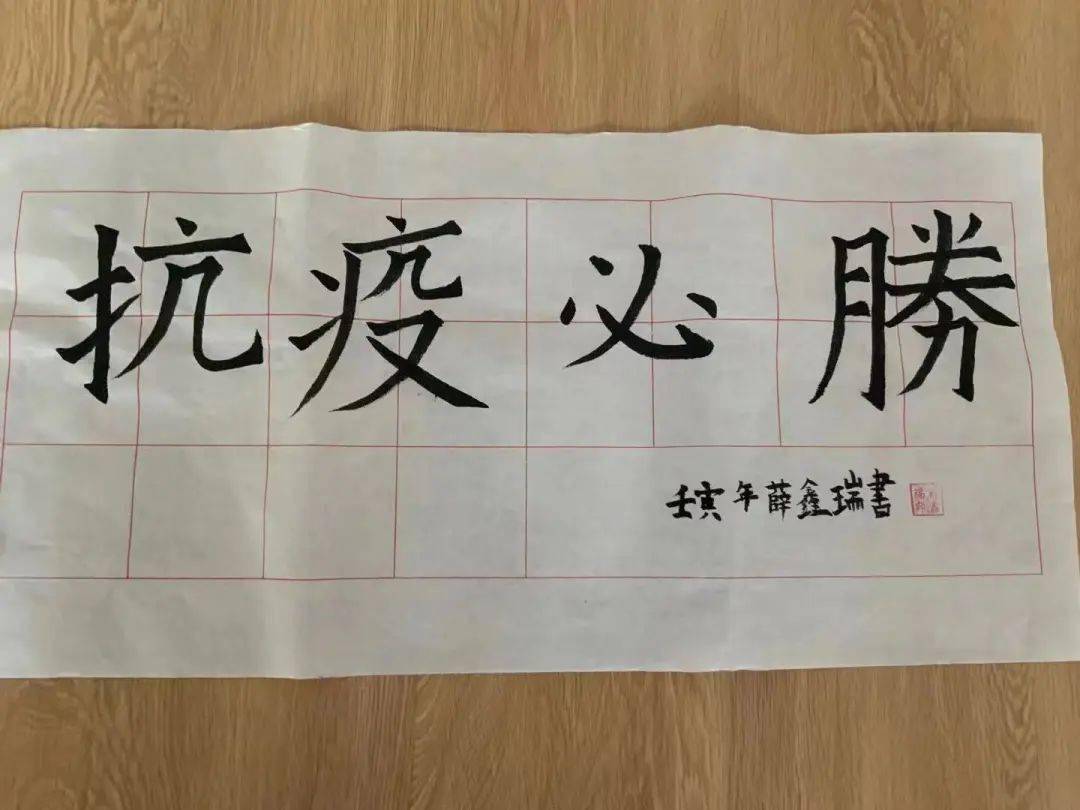 抗疫必勝
壬寅年薛鑫瑞書